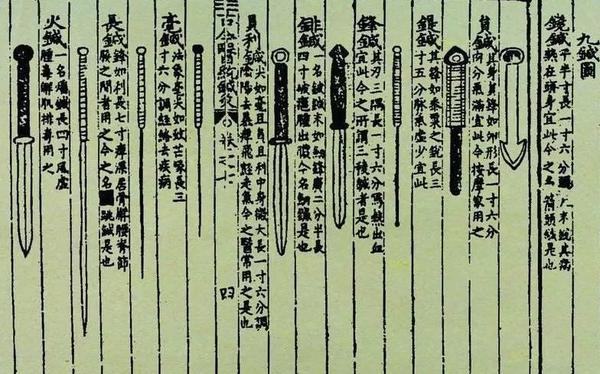 九鍼圖
鑱鍼 平半寸長一寸六分 大末銳其病
熱在頭身宜此今之名箭頭鍼是也
員鍼 其身員鋒如卵形長一寸六分
肉分氣滿宜此今按摩家用之
鍉鍼 其鋒如黍粟之銳長三
寸五分脈氣虛少宜此
鋒鍼 其刃三隅長一寸六分瀉熱出血
宜此今之所謂三稜鍼者是也
鈹鍼 一名鈹鍼末如劒鋒廣二分半長
四寸破癰腫出膿今名劒鍼是也
員利鍼 尖如毫且員且利中身微大長一寸六分調
陰陽去暴痺飛經走氣今之醫常用之是也
古今醫統鍼灸 卷之七 四
毫鍼 法象毫尖如蚊虻喙長三
寸六分調經絡去疾病
長鍼 鋒如利長七寸痺深居骨解腰脊節
腠之間者用之今之名 跳鍼是也
火鍼 一名燔鍼長四寸風虛
腫毒解肌排毒用之